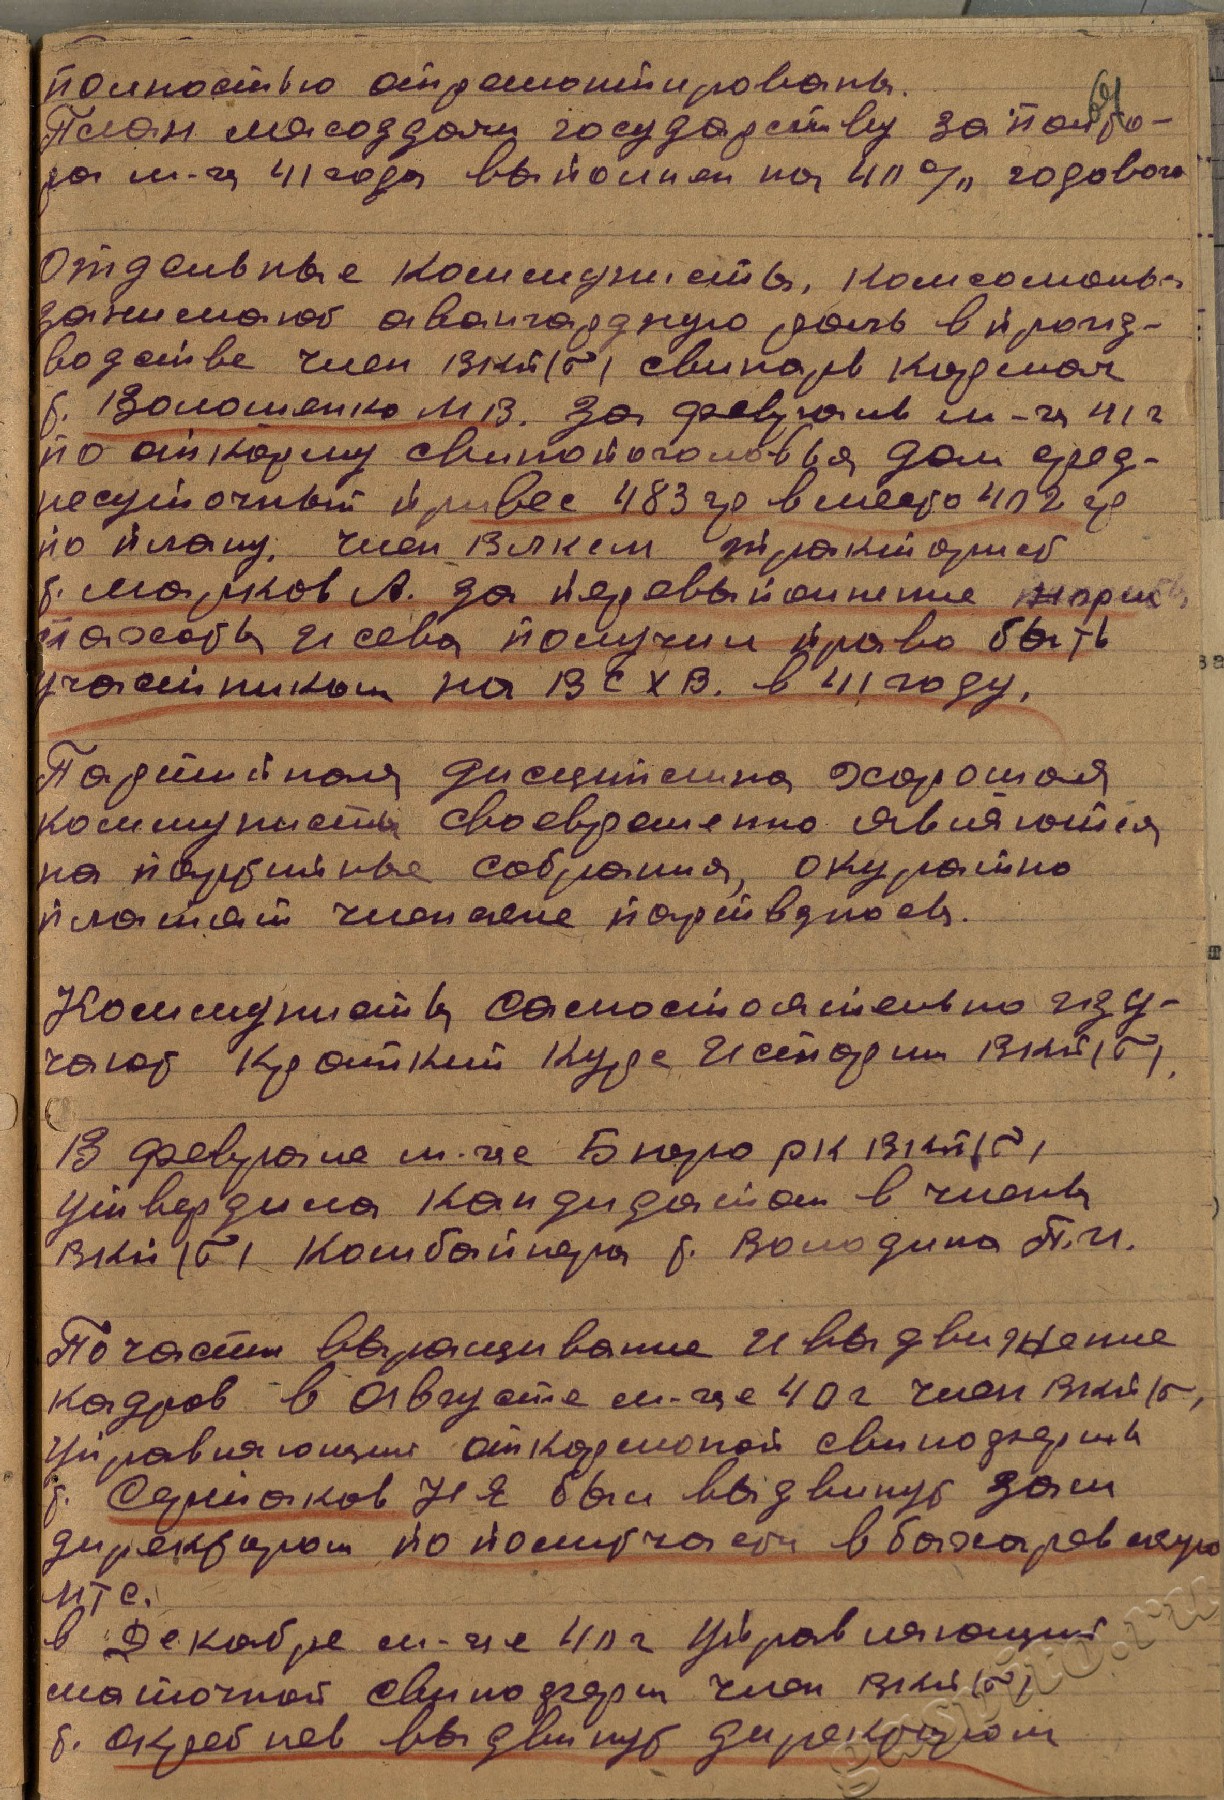 полностью отремонтированы.
План мясосдачи государству за полто-
ра м-ца 41 года выполнен на 40 % годового
Отдельные коммунисты, комсомольцы
занимают авангардную роль в произ-
водстве член ВКП(б) свинарь кормач
т. Волошенко М В. За февраль м-ц 41 г
по откорму свинопоголовья дал сред-
несуточный привес 483 гр вместо 402 гр
по плану. член ВЛКСМ тракторист
т. Марков А. за перевыполнение норм
пахоты и сева получил право быть
участником на ВСХВ. в 41 году.
Партийная дисциплина хорошая
коммунисты своевременно являются
на партийные собрания, окуратно
платят членские партвзносы.
Коммунисты самостоятельно изу-
чают Краткий Курс Истории ВКП(б).
В феврале м-це Бюро РК ВКП(б)
утвердила кандидатом в члены
ВКП(б) комбайнера т. Володина П.И.
По части выращивание и выдвижение
кадров в Августе м-це 40 г член ВКП(б)
управляющий откормочной свинофермы
т. Серпаков И Я был выдвинут зам
директором по политчасти в бахаревскую
МТС.
в Декабре м-це 40 г управляющий
маточной свиноферм член ВКП(б)
т. Окребнев выдвинут директором
gaspito.ru